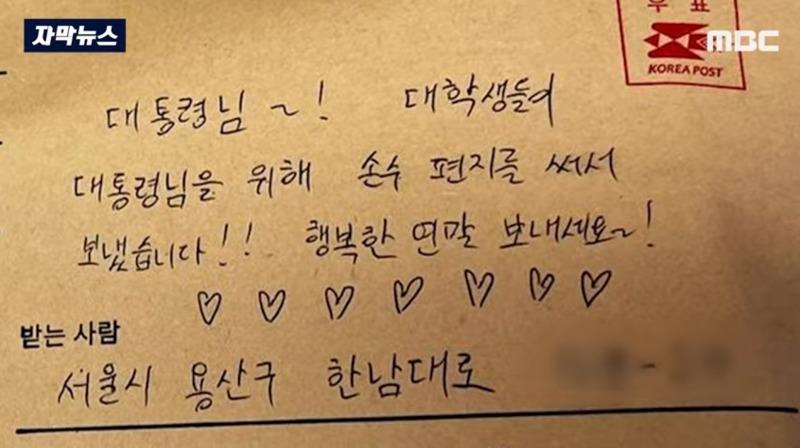 자막뉴스
우표
MBC
KOREA POST
대통령님~! 대학생들이
대통령님을 위해 손수 편지를 써서
보냈습니다!! 행복한 연말 보내세요~!
♡ ♡ ♡ ♡ ♡ ♡ ♡
받는 사람
서울시 용산구 한남대로